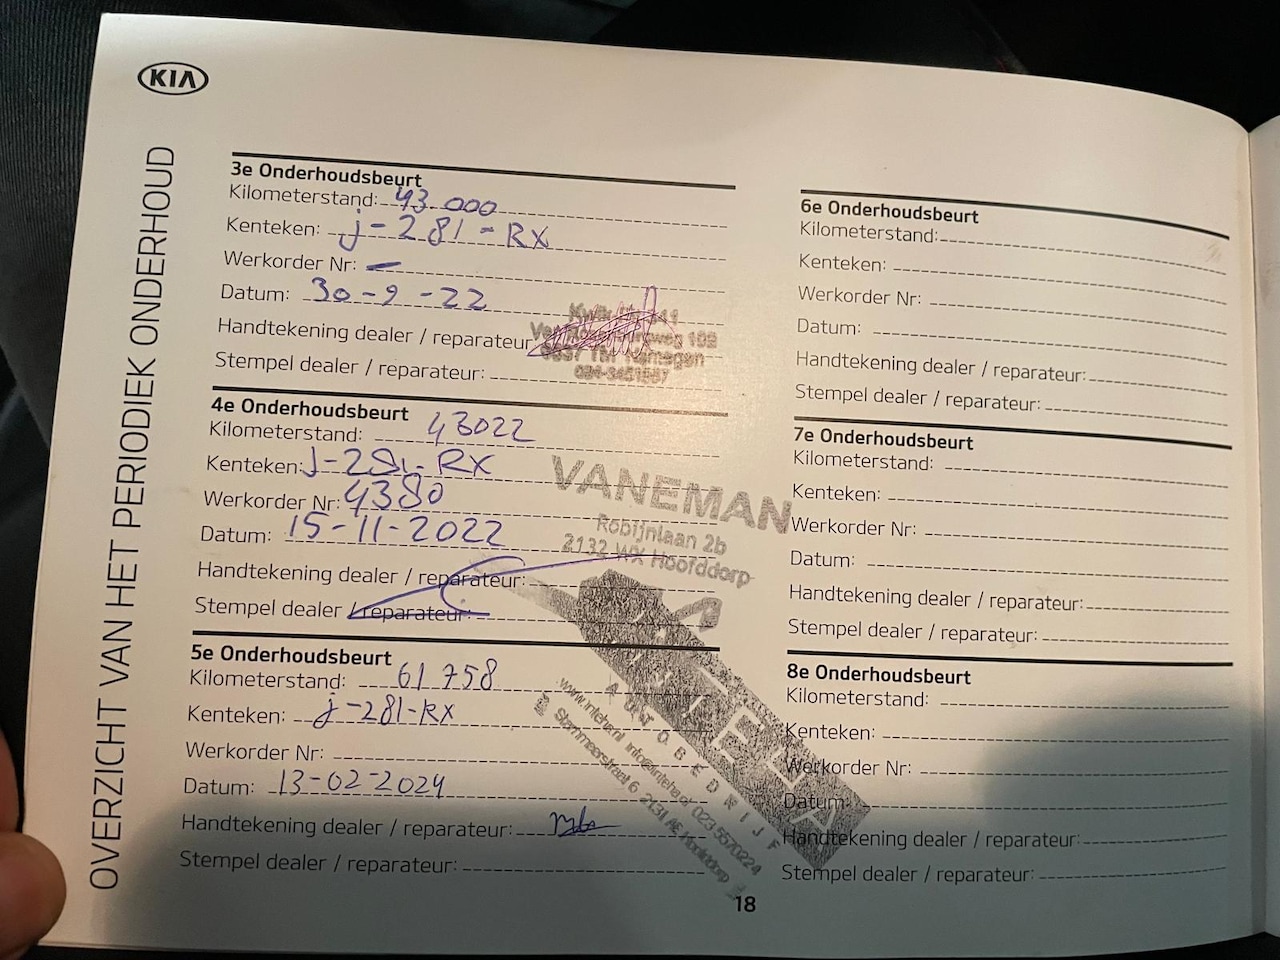 KIA
OVERZICHT VAN HET PERIODIEK ONDERHOUD
3e Onderhoudsbeurt
Kilometerstand: 43.000
Kenteken: j-281-RX
Werkorder Nr: –
Datum: 30-9-22
Handtekening dealer / reparateur:
Stempel dealer / reparateur:
weg 102
Nijmegen
4e Onderhoudsbeurt
Kilometerstand: 43022
Kenteken: J-281-RX
Werkorder Nr: 4380
Datum: 15-11-2022
Handtekening dealer / reparateur:
Stempel dealer / reparateur:
VANEMAN
Robijnlaan 2b
2132 WX Hoofddorp
5e Onderhoudsbeurt
Kilometerstand: 61758
Kenteken: j-281-RX
Werkorder Nr:
Datum: 13-02-2024
Handtekening dealer / reparateur:
Stempel dealer / reparateur:
INTEHA
AUTOBEDRIJF
www.inteha.nl info@inteha.nl 023 5570224
Stommeerstraat 6 2131 Hoofddorp
6e Onderhoudsbeurt
Kilometerstand:
Kenteken:
Werkorder Nr:
Datum:
Handtekening dealer / reparateur:
Stempel dealer / reparateur:
7e Onderhoudsbeurt
Kilometerstand:
Kenteken:
Werkorder Nr:
Datum:
Handtekening dealer / reparateur:
Stempel dealer / reparateur:
8e Onderhoudsbeurt
Kilometerstand:
Kenteken:
Werkorder Nr:
Datum:
Handtekening dealer / reparateur:
Stempel dealer / reparateur:
18